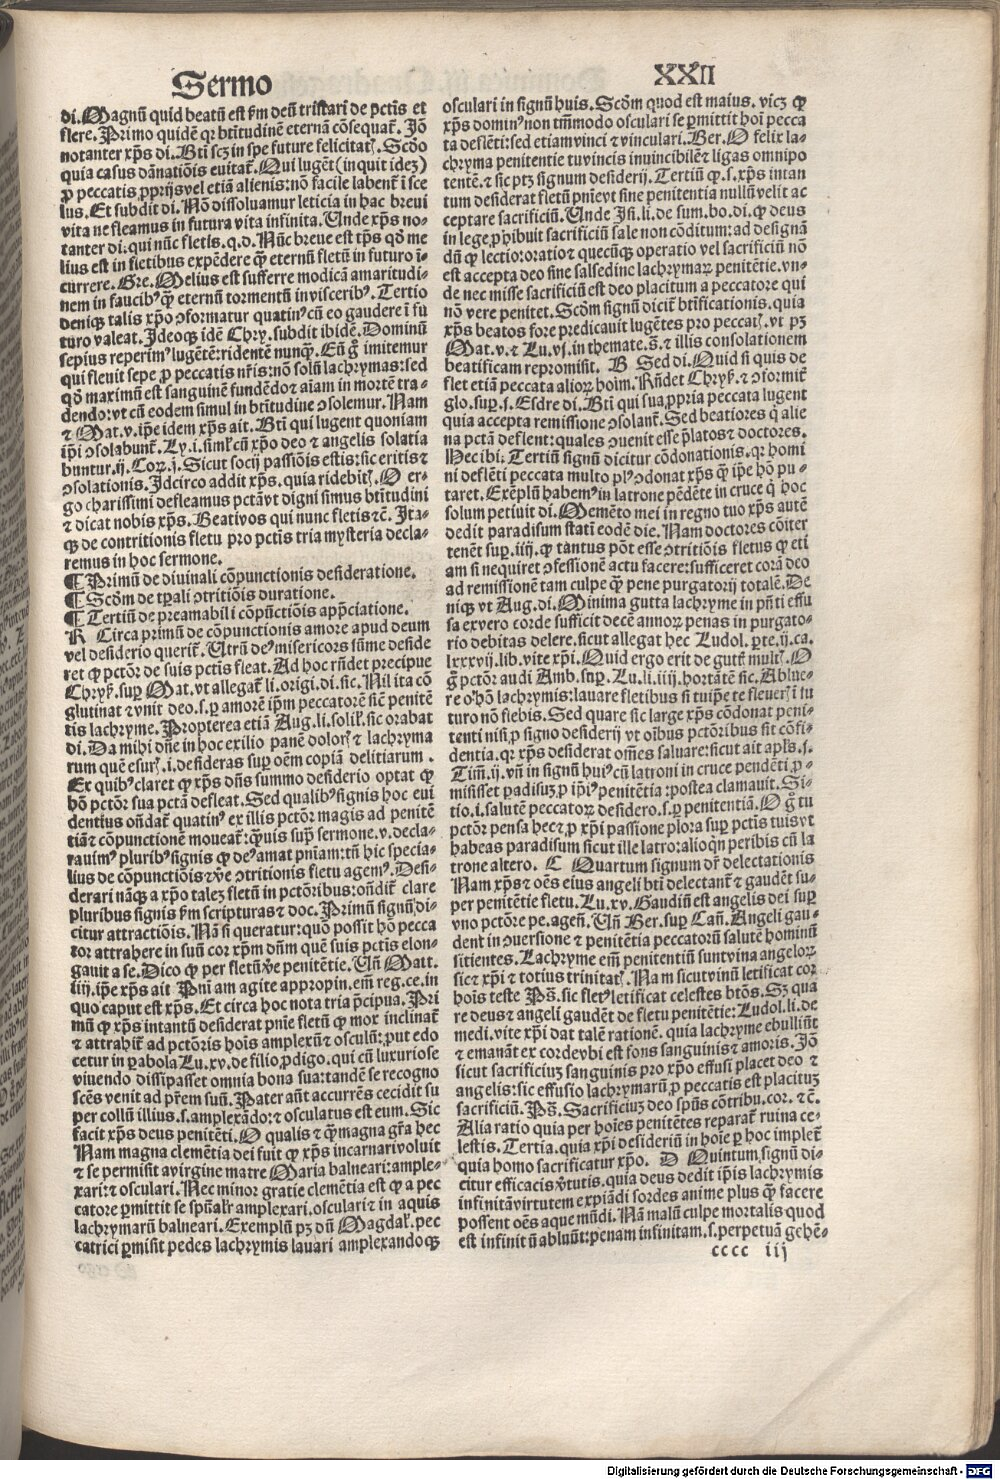 Sermo
XXII
di. Magnũ quid beatũ est ẜm deũ tristari de pctis et
flere. Primo quidẽ qr btitudinẽ eternã cõsequat᷑. Jõ
notanter xp̃s di. Bti sꝫ in spe future felicitatꝭ. Scđo
quia casus dãnatiõis euitat᷑. Qui lugẽt (in quit idez)
ꝓ peccatis ꝓprijs vel etiã alienis: nõ facile labent᷑ ĩ sce
lus. Et subdit di. Nõ dissoluamur leticia in hac breui
vita ne fleamus in futura vita infinita. Unde xp̃s no-
tanter di. qui nũc fletis. q.d. Nũc breue est tp̃s qđ me
lius est in fletibus expẽdere q̃ȝ eternũ fletũ in futuro ĩ-
currere. Gre. Melius est sufferre modicã amaritudi-
nem in faucibꝰ q̃ȝ eternũ tormentũ in visceribꝰ. Tertio
deniqꝫ talis xp̃o ꝯformatur quatinꝰ cũ eo gaudere ĩ fu
turo valeat. Jdeoqꝫ idẽ Chry. subdit ibidẽ. Dominũ
sepius reperimꝰ lugẽtẽ: ridentẽ nunq̃ȝ. Eũ g̊ imitemur
qui fleuit sepe ꝓ peccatis nr̃is: nõ solũ lachrymas: sed
qđ maximũ est sanguinẽ fundẽdo ⁊ aĩam in mortẽ tra-
dendo: vt cũ eodem simul in btitudine ꝯsolemur. Nam
⁊ Mat. v. ip̃e idem xp̃s ait. Bti qui lugent quoniam
ip̃i ꝯsolabunt᷑. Ly. i. simĺ cũ xp̃o deo ⁊ angelis solatia
buntur. ij. Coꝝ. j. Sicut socij passiõis estis: sic eritis ⁊
ꝯsolationis. Jdcirco addit xp̃s. quia ridebitꝭ. O er-
go charissimi defleamus pctã vt digni simus btitudini
⁊ dicat nobis xp̃s. Beati vos qui nunc fletis ⁊c̃. Jta-
qꝫ de contritionis fletu pro pctis tria mysteria decla-
remus in hoc sermone.
¶ Primũ de diuinali cõpunctionis desideratione.
¶ Scđm de tp̃ali ꝯtritiõis duratione.
¶ Tertiũ de preamabili cõpũctiõis app̃ciatione.
A Circa primũ de cõpunctionis amore apud deum
vel desiderio querit᷑. Utrũ deꝰ misericors sũme deside
ret ꝙ pctõr de suis pctis fleat. Ad hoc rñdet precipue
Chryẜ. suꝑ Mat. vt allegat᷑ li. origi. di. sic. Nil ita cõ
glutinat ⁊ vnit deo. s. ꝑ amorẽ ip̃m peccatorẽ sic̃ penitẽ
tis lachryme. Propterea etiã Aug. li. soliĺ. sic orabat
di. Da mihi dñe in hoc exilio panẽ dolorꝭ ⁊ lachryma
rum quẽ esurꝭ. i. desideras suꝑ oẽm copiã delitiarum.
Ex quibꝰ claret ꝙ xp̃s dñs summo desiderio optat ꝙ
hõ pctõr sua pctã defleat. Sed qualibꝰ signis hoc eui
dentius oñdat᷑ quatinꝰ ex illis pctõr magis ad penitẽ
tiã ⁊ cõpunctionẽ moueat᷑: q̃ȝuis suꝑ sermone. v. decla-
rauimꝰ pluribꝰ signis ꝙ deꝰ amat pñiam: tñ hic specia-
lius de cõpunctiõis ⁊ ve̾ ꝯtritionis fletu agemꝰ. Desi-
derari nãqꝫ a xp̃o talez fletũ in pctõribus: oñdit᷑ clare
pluribus signis ẜm scripturas ⁊ doc. Primũ signũ di-
citur attractiõis. Nã si queratur: quõ possit hõ pecca
tor attrahere in suũ cor xp̃m dñm quẽ suis pctis elon-
gauit a se. Dico ꝙ per fletũ ve̾ penitẽtie. Uñ Matt.
iiij. ip̃e xp̃s ait Pñi am agite appropin. em̃ reg. ce. in
quo caput est xp̃s. Et circa hoc nota tria p̃cipua. Pri
mũ ꝙ xp̃s intantũ desiderat pñie fletũ ꝙ mox inclinat᷑
⁊ attrahit᷑ ad pctõris hois amplexũ ⁊ osculũ: ꝓut edo
cetur in ꝑabola Lu. xv. de filio ꝓdigo. qui cũ luxuriose
viuendo dissipasset omnia bona sua: tandẽ se recogno
scẽs venit ad pr̃em suũ. Pater aũt accurrẽs cecidit su
per collũ illius. s. amplexãdo: ⁊ osculatus est eum. Sic
facit xp̃s deus penitẽti. O qualis ⁊ q̃ȝ magna gr̃a hec
Nam magna clemẽtia dei fuit ꝙ xp̃s incarnari voluit
⁊ se permisit a virgine matre Maria balneari: ample-
xari: ⁊ osculari. Nec minor gratie clemẽtia est ꝙ a pec
catore ꝑmittit se sp̃naĺr amplexari. osculari ⁊ in aquis
lachrymarũ balneari. Exemplũ pꝫ dũ Magdaĺ. pec
catrici ꝑmisit pedes lachrymis lauari amplexandoqꝫ
osculari in signũ huis. Scđm quod est maius. vicꝫ ꝙ
xp̃s dominꝰ non tm̃modo osculari se ꝑmittit hoĩ pecca
ta deflẽti: sed etiam vinci ⁊ vinculari. Ber. O felix la-
chryma penitentie tu vincis inuincibilẽ ⁊ ligas omnipo
tentẽ. ⁊ sic ptꝫ signum desiderij. Tertiũ ꝙ. s. xp̃s intan
tum desiderat fletũ pñie vt sine penitentia nullũ velit ac
ceptare sacrificiũ. Unde Jsi. li. de sum. bo. di. ꝙ deus
in lege ꝓhibuit sacrificiũ sale non cõditum: ad designã
dũ ꝙ lectio: oratio ⁊ quecũqꝫ operatio vel sacrificiũ nõ
est accepta deo sine salsedine lachrymaꝝ penitẽtie. vn-
de nec misse sacrificiũ est deo placitum a peccatore qui
nõ vere penitet. Scđm signũ dicit᷑ btificationis. quia
xp̃s beatos fore predicauit lugẽtes pro peccatꝭ. vt pꝫ
Mat. v. ⁊ Lu. vj. in themate. s̃. ⁊ illis consolationem
beatificam repromisit. B Sed di. Quid si quis de
flet etiam peccata alioꝝ hoĩm. Rñdet Chryẜ. ⁊ ꝯformit᷑
glo. suꝑ. j. Esdre di. Bti qui sua ꝓpria peccata lugent
quia accepta remissione ꝯsolant᷑. Sed beatiores q̇ alie
na pctã deflent: quales ꝯuenit esse p̃latos ⁊ doctores.
Hec ibi. Tertiũ signũ dicitur cõdonationis. qr homi
ni deflẽti peccata multo plꝰ ꝯdonat xp̃s q̃ȝ ip̃e hõ pu-
taret. Exẽplũ habemꝰ in latrone pẽdẽte in cruce q̇ hoc
solum petiuit di. Memẽto mei in regno tuo xp̃s autẽ
dedit paradisum statĩ eodẽ die. Nam doctores cõiter
tenẽt suꝑ. iiij. ꝙ tantus põt esse ꝯtritiõis fletus ꝙ eti
am si nequiret ꝯfessionẽ actu facere: sufficeret corã deo
ad remissionẽ tam culpe q̃ȝ pene purgatorij totalẽ. De
niqꝫ vt Aug. di. Minima gutta lachryme in pñti effu
sa ex vero corde sufficit decẽ annoꝝ penas in purgato-
rio debitas delere. sicut allegat hec Ludol. ꝑte. ij. ca.
lxxxvij. lib. vite xp̃i. Quid ergo erit de guttꝭ multꝭ. O
g̊ pctõr audi Amb. suꝑ. Lu. li. iiij. hortãtẽ sic. Ablue-
re o hõ lachrymis: lauare fletibus si tuip̃e te fleuerꝭ ĩ fu
turo nõ flebis. Sed quare sic large xp̃s cõdonat peni-
tenti nisi ꝓ signo desiderij vt oĩbus pctõribus sit cõfi-
dentia. qr xp̃s desiderat oẽs saluare: sicut ait apl̃s. j.
Tim̃. ij. vñ in signum huiꝰ cũ latroni in cruce pendẽti ꝓ-
misisset padisuꝫ ꝓ ip̃iꝰ penitẽtia: postea clamauit. Si-
tio. i. salutẽ peccatoꝝ desidero. s. ꝑ penitentiã. O g̊ tu
pctõr pensa hec ⁊ ꝓ xp̃i passione plora suꝑ pctis tuis vt
habeas paradisum sicut ille latro: alioq̇n peribis cũ la
trone altero. C Quartum signum dr̃ delectationis
Nam xp̃s ⁊ oẽs eius angeli bti delectant᷑ ⁊ gaudẽt su-
per penitẽtie fletu. Lu. xv. Gaudiũ est angelis dei suꝑ
vno pctõre pe. ageñ. Uñ Ber. suꝑ Cañ. Angeli gau-
dent in ꝯuersione ⁊ penitẽtia peccatorũ salutẽ hominũ
sitientes. Lachryme em̃ penitentiũ sunt vina angeloꝝ
sic ⁊ xp̃i ⁊ totius trinitatꝭ. Nam sicut vinũ letificat cor
hois teste Ps̃. sic fletꝰ letificat celestes btõs. Sꝫ qua
re deus ⁊ angeli gaudẽt de fletu penitẽtie: Ludol. li. de
medi. vite xp̃i dat talẽ rationẽ. quia lachryme ebulliũt
⁊ emanãt ex corde vbi est fons sanguinis ⁊ amoris. Jõ
sicut sacrificiuꝫ sanguinis pro xp̃o effusi placet deo ⁊
angelis: sic effusio lachrymarũ ꝓ peccatis est placituꝫ
sacrificiũ. Ps̃. Sacrificiuꝫ deo sp̃us cõtribu. cor. ⁊c̃.
Alia ratio quia per hoĩes penitẽtes reparat᷑ ruina ce-
lestis. Tertia. quia xp̃i desideriũ in hoĩe ꝑ hoc implet᷑
quia homo sacrificatur xp̃o. D Quintum signũ di-
citur efficacis vt̃utis. quia deus dedit ip̃is lachrymis
infinitã virtutem expiãdi sordes anime plus q̃ȝ facere
possent oẽs aque mũdi. Nã malũ culpe mortalis quod
est infinit ũ abluũt: penam infinitam. s. perpetuã gehẽ-
cccc iij
Digitalisierung gefördert durch die Deutsche Forschungsgemeinschaft - DFG